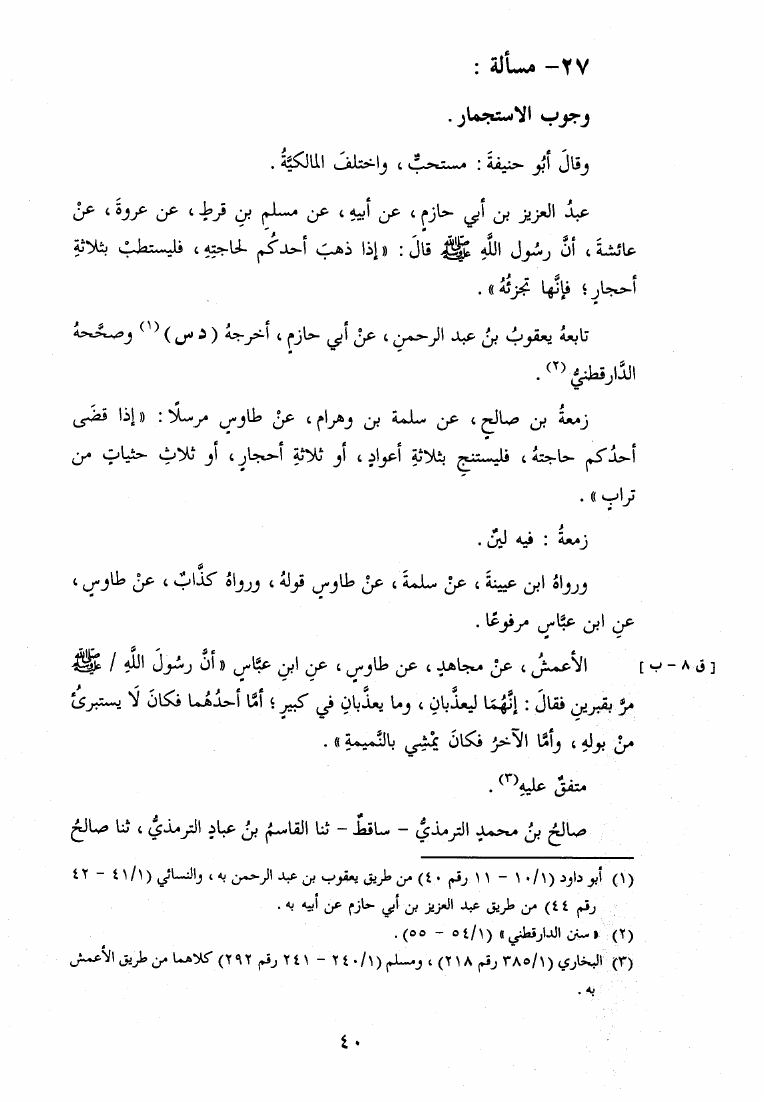 ٢٧- مسألة :
وجوب الاستجمار .
وقالَ أبُو حنيفةَ : مستحبٌّ ، واختلفَ المالكيَّةُ .
عبدُ العزيز بن أبي حازمٍ ، عن أبيهِ ، عن مسلمِ بنِ قرطٍ ، عن عروةَ ، عنْ
عائشةَ ، أنَّ رسُول اللَّهِ ﷺ قالَ : «إذا ذهبَ أحدكُم لحاجتِهِ ، فليستطبْ بثلاثةِ
أحجارٍ ؛ فإنَّها تجزئُهُ» .
تابعهُ يعقوبُ بنُ عبد الرحمنِ ، عنْ أبي حازمٍ ، أخرجهُ ( د س ) (١) وصحَّحهُ
الدَّارقطنيُّ (٢) .
زمعةُ بن صالحٍ ، عن سلمة بن وهرام ، عنْ طاوسٍ مرسلًا : «إذا قضَى
أحدُكم حاجتهُ ، فليستنجِ بثلاثةِ أعوادٍ ، أو ثلاثةِ أحجارٍ ، أو ثلاثِ حثياتٍ من
ترابٍ» .
زمعةُ : فيه لينٌ .
ورواهُ ابن عيينةَ ، عنْ سلمةَ ، عنْ طاوسٍ قولهُ ، ورواهُ كذَّابٌ ، عنْ طاوسٍ ،
عنِ ابن عبَّاسٍ مرفوعًا .
[ ق ٨ - ب ] الأعمشُ ، عنْ مجاهدٍ ، عن طاوسٍ ، عنِ ابنِ عبَّاسٍ «أنَّ رسُولَ اللَّهِ / ﷺ
مرَّ بقبرينِ فقالَ : إنَّهُمَا ليعذَّبانِ ، وما يعذَّبانِ في كبيرٍ ؛ أمَّا أحدُهُما فكانَ لَا يستبرئُ
منْ بولهِ ، وأمَّا الآخرُ فكانَ يمْشِي بالنَّميمةِ» .
متفقٌ عليهِ(٣) .
صالحُ بنُ محمدٍ الترمذيُّ - ساقطٌ - ثنا القاسمُ بنُ عبادٍ الترمذيُّ ، ثنا صالحُ
(١) أبو داود (١/ ١٠ - ١١ رقم ٤٠) من طريق يعقوب بن عبد الرحمن به ، والنسائي (١/ ٤١ - ٤٢
رقم ٤٤) من طريق عبد العزيز بن أبي حازم عن أبيه به .
(٢) «سنن الدارقطني» (١/ ٥٤ - ٥٥) .
(٣) البخاري (١/ ٣٨٥ رقم ٢١٨) ، ومسلم (١/ ٢٤٠ - ٢٤١ رقم ٢٩٢) كلاهما من طريق الأعمش
به .
٤٠